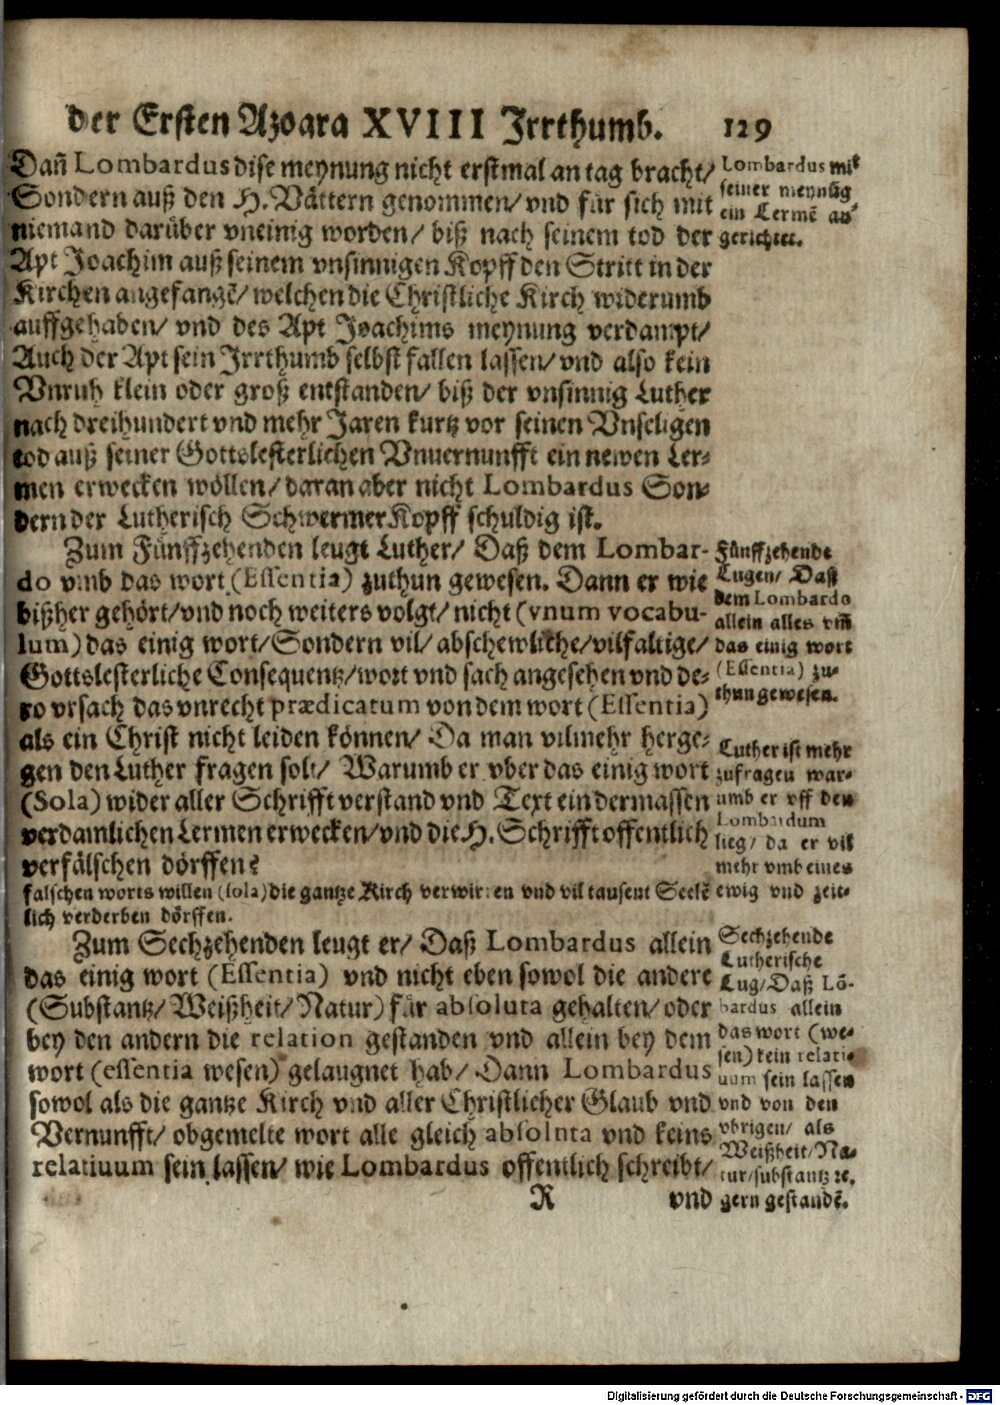 der Ersten Azoara XVIII Irrthumb. 129
Dañ Lombardus dise meynung nicht erstmal an tag bracht/
Sondern auß den H. Vättern genommen/ vnd für sich mit
niemand darüber vneinig worden/ biß nach seinem tod der
Apt Joachim auß seinem vnsinnigen Kopff den Stritt in der
Kirchen angefangẽ/ welchen die Christliche Kirch widerumb
auffgehaben/ vnd des Apt Joachims meynung verdampt/
Auch der Apt sein Irrthumb selbst fallen lassen/ vnd also kein
Vnruh klein oder groß entstanden/ biß der vnsinnig Luther
nach dreihundert vnd mehr Jaren kurtz vor seinen Vnseligen
tod auß seiner Gottslesterlichen Vnuernunfft ein newen Ler-
men erwecken wöllen/ daran aber nicht Lombardus Son-
dern der Lutherisch Schwermer Kopff schuldig ist.
Lombardus mit
seiner meynũg
ein Lermẽ an-
gerichtet.
Zum Fünffzehenden leugt Luther/ Daß dem Lombar-
do vmb das wort (Essentia) zuthun gewesen. Dann er wie
bißher gehört/ vnd noch weiters volgt/ nicht (vnum vocabu-
lum) das einig wort/ Sondern vil/ abschewliche/ vilfaltige/
Gottslesterliche Consequentz/ wort vnd sach angesehen vnd de-
ro vrsach das vnrecht prædicatum von dem wort (Essentia)
als ein Christ nicht leiden können/ Da man vilmehr herge-
gen den Luther fragen solt/ Warumb er vber das einig wort
(Sola) wider aller Schrifft verstand vnd Text ein dermassen
verdamlichen Lermen erwecken/ vnd die H. Schrifft offentlich
verfälschen dörffen?
Fünffzehende
Lugen/ Daß
dem Lombardo
allein alles vm̃
das einig wort
(Essentia) zu-
thun gewesen.
Luther ist mehr
zufragen war-
umb er vff den
Lombardum
lieg/ da er vil
mehr vmb eines
falschen worts willen (sola) die gantze Kirch verwirren vnd vil tausent Seelẽ ewig vnd zeit-
lich verderben dörffen.
Zum Sechzehenden leugt er/ Daß Lombardus allein
das einig wort (Essentia) vnd nicht eben sowol die andere
(Substantz/ Weißheit/ Natur) für absoluta gehalten/ oder
bey den andern die relation gestanden vnd allein bey dem
wort (essentia wesen) gelaugnet hab/ Dann Lombardus
sowol als die gantze Kirch vnd aller Christlicher Glaub vnd
Vernunfft/ obgemelte wort alle gleich absolnta vnd keins
relatiuum sein lassen/ wie Lombardus offentlich schreibt/
Sechzehende
Lutherische
Lug/ Daß Lõ-
bardus allein
das wort (we-
sen) kein relati-
uum sein lassen
vnd von den
vbrigen/ als
Weißheit/ Na-
tur/ substantz ꝛc.
gern gestandẽ.
R vnd
Digitalisierung gefördert durch die Deutsche Forschungsgemeinschaft - DFG